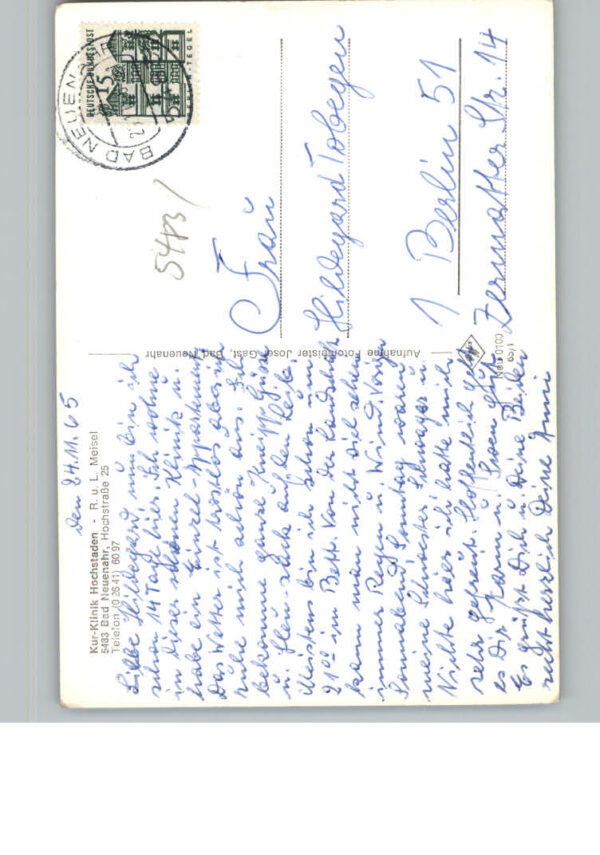 den 24.11.65
Kur-Klinik Hochstaden - R. u. L. Meisel
5483 Bad Neuenahr, Hochstraße 25
Telefon (0 26 41) 60 97
Liebe Hildegard nun bin ich
schon 14 Tage hier. Ich wohne
in dieser schönen Klinik u.
habe ein Einzel-Appartement
Das Wetter ist trostlos aber ich
ruhe mich schön aus. Ich
bekomme ganze Kneipp Güsse
u. Heu-säcke auf den Leib.
Meistens bin ich schon um
21°° im Bett. Von der Landschaft
kann man nicht viel sehen
immer Regen u. Wind. Vorigen
Sonnabend Sonntag waren
meine Schwester Schwager u.
Nichte hier ich hatte mich
sehr gefreut. Hoffentlich geht
es Dir, Hann u.
Es grüßt Dich u. Deine Brüder
recht herzlich Deine Anni
Aufnahme Fotomeister Josef Gast, Bad Neuenahr
Neu 0100
65/1
DEUTSCHE BUNDESPOST
15
TEGEL
BAD NEUENAHR
5483
Frau
Hildegard Tobegen
1 Berlin 51
Zermatter Str. 14